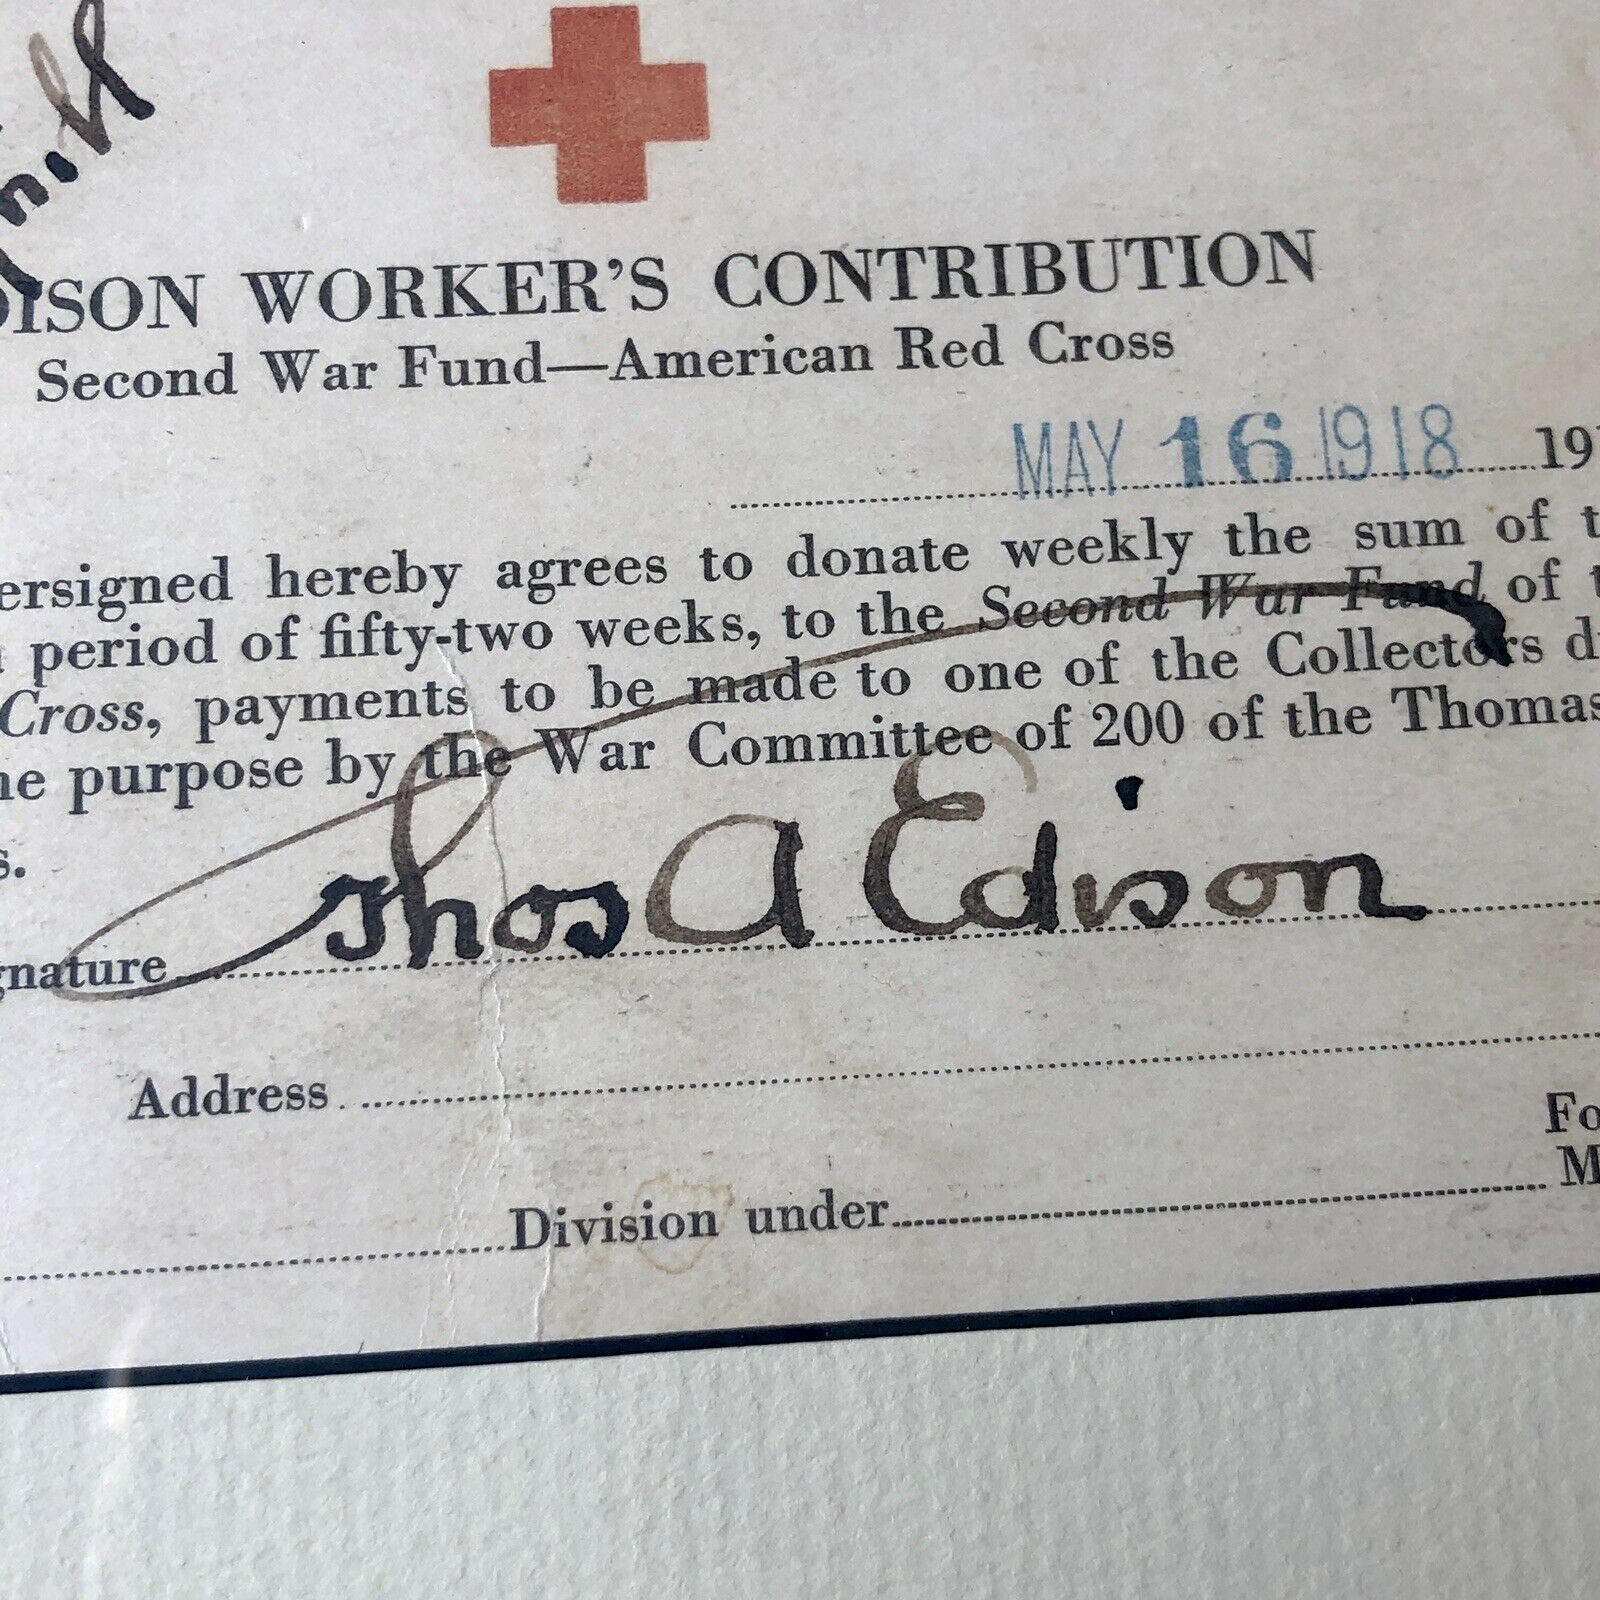 EDISON WORKER'S CONTRIBUTION
Second War Fund—American Red Cross
MAY 16 1918 191
ersigned hereby agrees to donate weekly the sum of t
a period of fifty-two weeks, to the Second War Fund of t
Cross, payments to be made to one of the Collectors d
he purpose by the War Committee of 200 of the Thomas
s.
gnature Thos A Edison
Address
Fo
Division under M